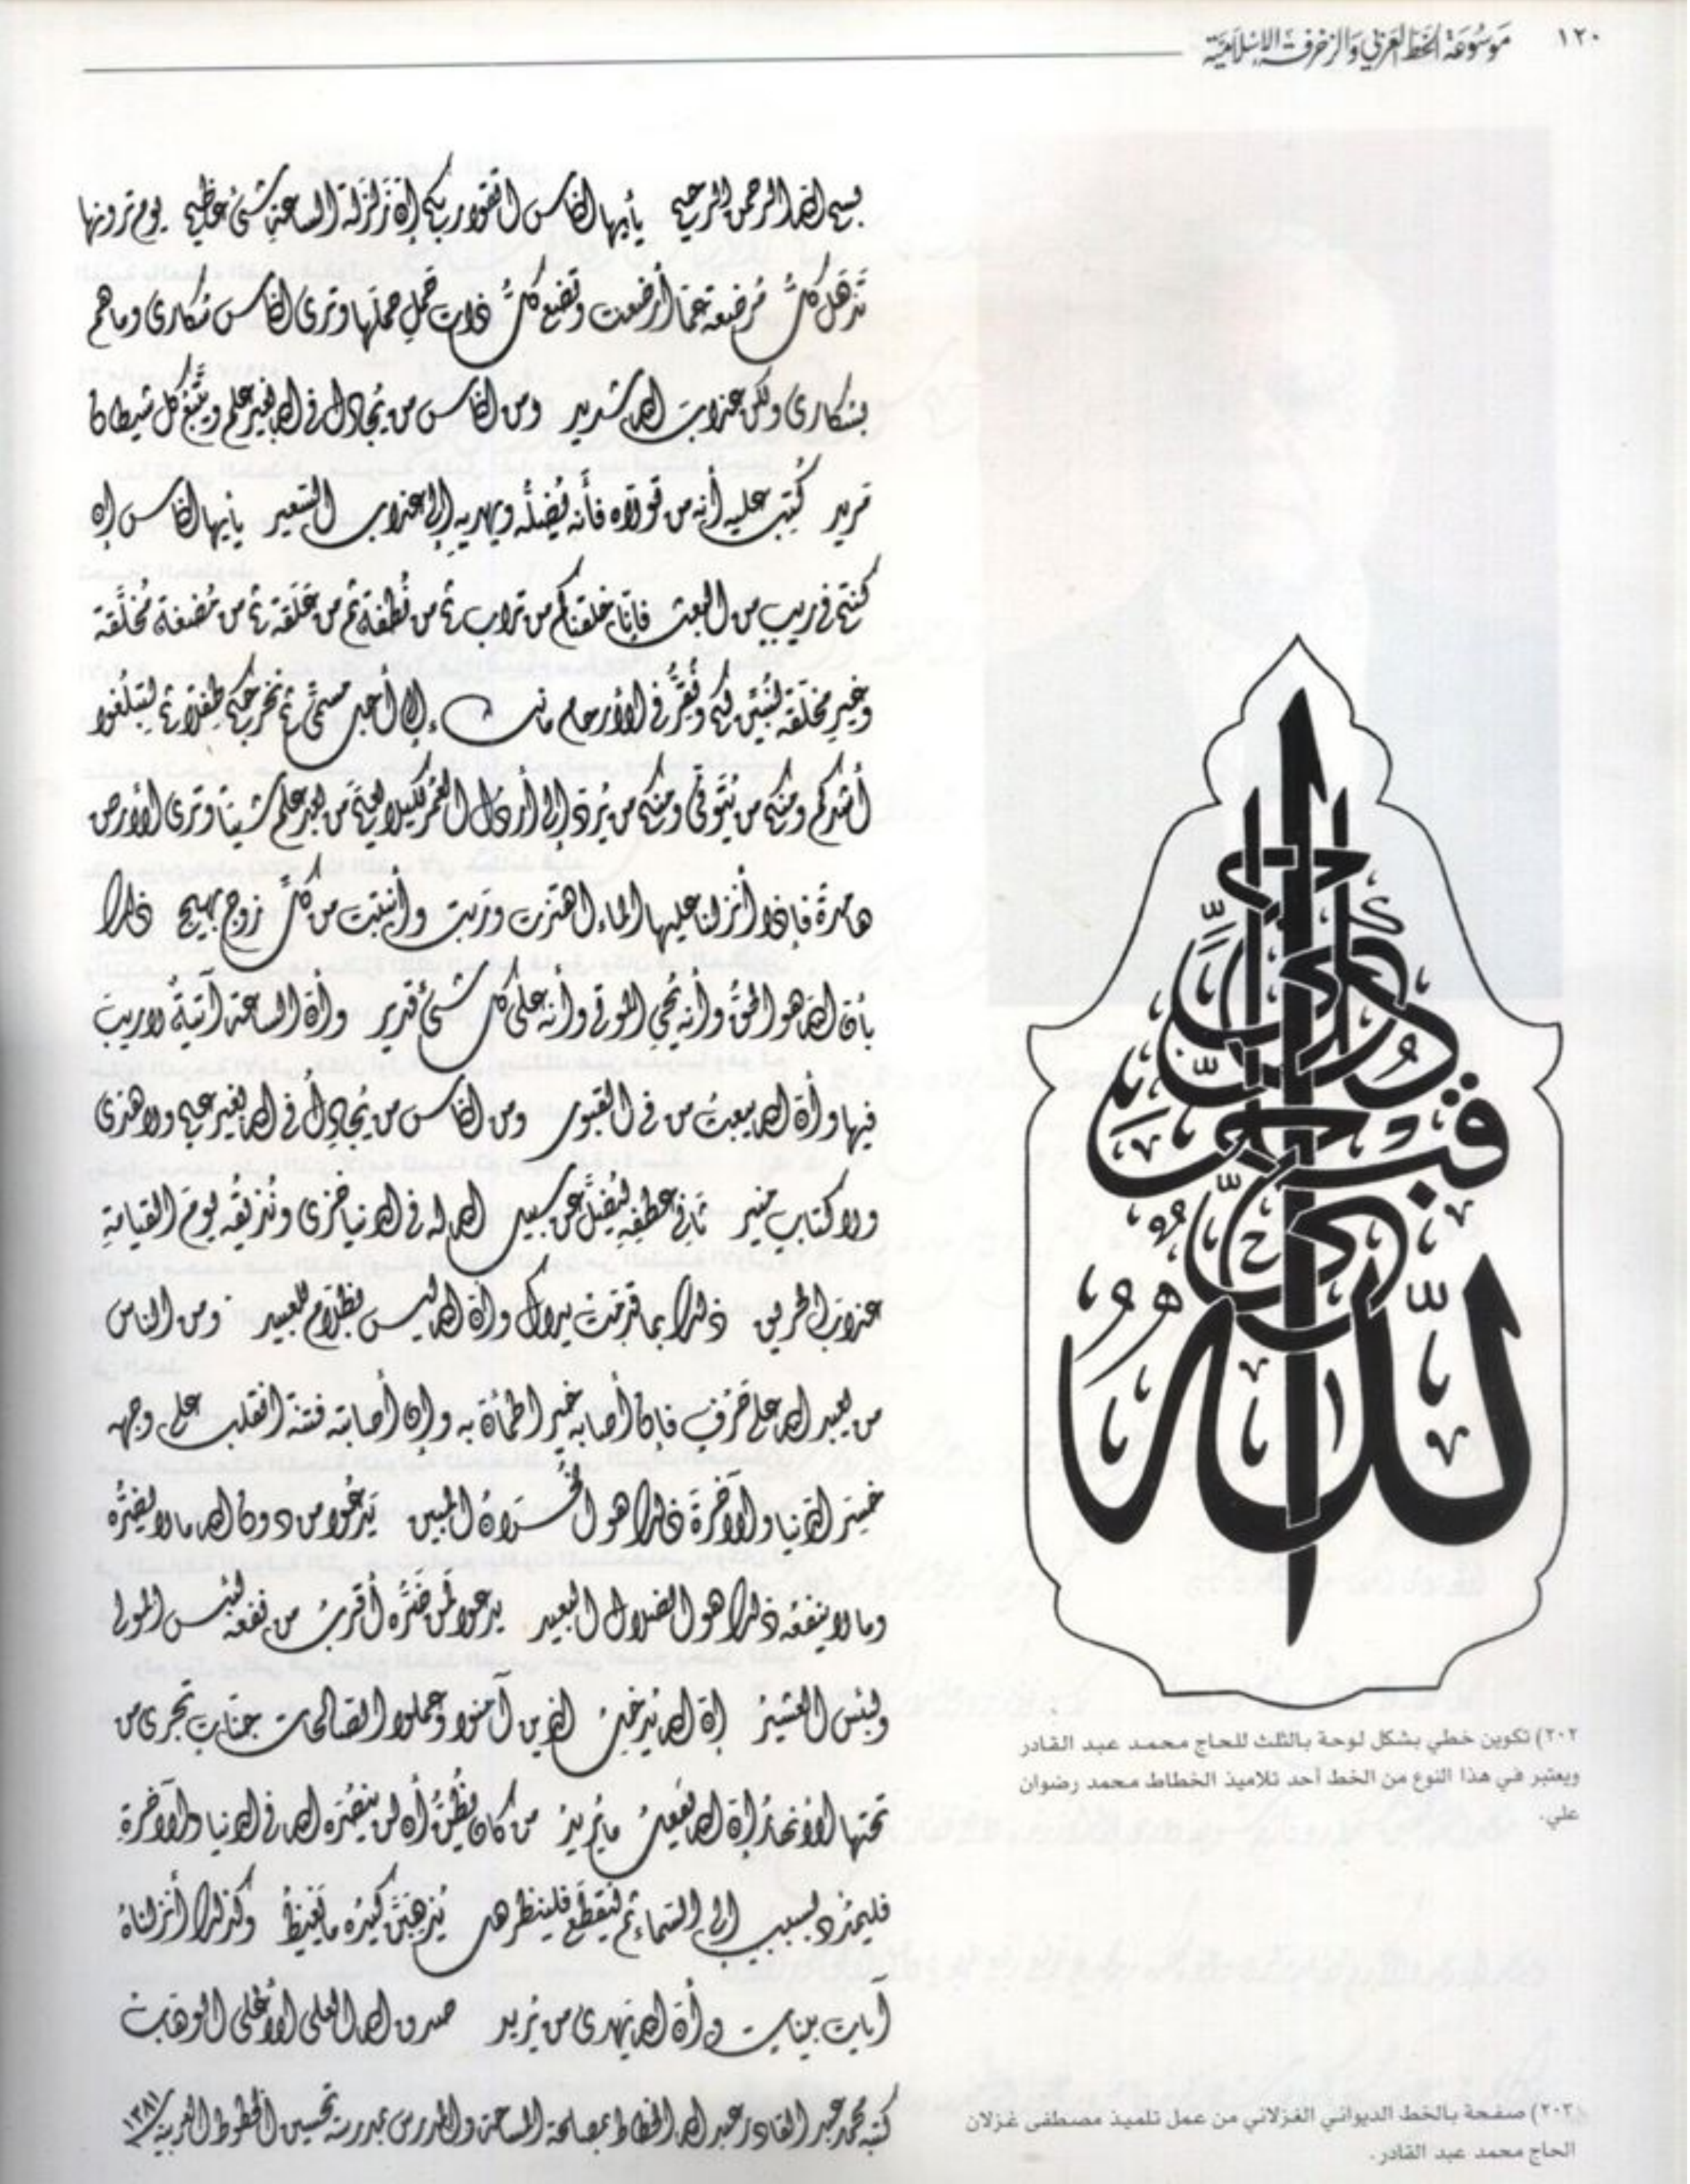 ١٢٠ موسوعة الخط العربي والزخرفة الإسلامية
بسم الله الرحمن الرحيم يأيها الناس اتقوا ربكم إن زلزلة الساعة شئ عظيم يوم ترونها
تذهل كل مرضعة عما أرضعت وتضع كل ذات حمل حملها وترى الناس سكارى وما هم
بسكارى ولكن عذاب الله شديد ومن الناس من يجادل في الله بغير علم ويتبع كل شيطان
مريد كتب عليه أنه من تولاه فأنه يضله ويهديه إلى عذاب السعير يأيها الناس إن
كنتم في ريب من البعث فإنا خلقناكم من تراب ثم من نطفة ثم من علقة ثم من مضغة مخلقة
وغير مخلقة لنبين لكم ونقر في الأرحام مانشاء إلى أجل مسمى ثم نخرجكم طفلا ثم لتبلغوا
أشدكم ومنكم من يتوفى ومنكم من يرد إلى أرذل العمر لكيلا يعلم من بعد علم شيئا وترى الأرض
هامدة فإذا أنزلنا عليها الماء اهتزت وربت وأنبتت من كل زوج بهيج ذلك
بأن الله هو الحق وأنه يحي الموتى وأنه على كل شئ قدير وأن الساعة آتية لاريب
فيها وأن الله يبعث من في القبور ومن الناس من يجادل في الله بغير علم ولا هدى
ولا كتاب منير ثاني عطفه ليضل عن سبيل الله له في الدنيا خزى ونذيقه يوم القيامة
عذاب الحريق ذلك بما قدمت يداك وأن الله ليس بظلام للعبيد ومن الناس
من يعبد الله على حرف فإن أصابه خير اطمأن به وإن أصابته فتنة انقلب على وجهه
خسر الدنيا والآخرة ذلك هو الخسران المبين يدعوا من دون الله مالا يضره
وما لا ينفعه ذلك هو الضلال البعيد يدعوا لمن ضره أقرب من نفعه لبئس المولى
ولبئس العشير إن الله يدخل الذين آمنوا وعملوا الصالحات جنات تجرى من
تحتها الأنهار إن الله يفعل مايريد من كان يظن أن لن ينصره الله في الدنيا والآخرة
فليمدد بسبب إلى السماء ثم ليقطع فلينظر هل يذهبن كيده مايغيظ وكذلك أنزلناه
آيات بينات وأن الله يهدى من يريد صدق الله العلى الأعلى الوهاب
كتبه محمد عبد القادر عبد الله الخطاط بمصلحة المساحة والمدرس بمدرسة تحسين الخطوط العربية ١٣٨١
٢٠٢) تكوين خطي بشكل لوحة بالثلث للحاج محمد عبد القادر
ويعتبر في هذا النوع من الخط أحد تلاميذ الخطاط محمد رضوان
علي.
٢٠٣) صفحة بالخط الديواني الغزلاني من عمل تلميذ مصطفى غزلان
الحاج محمد عبد القادر.